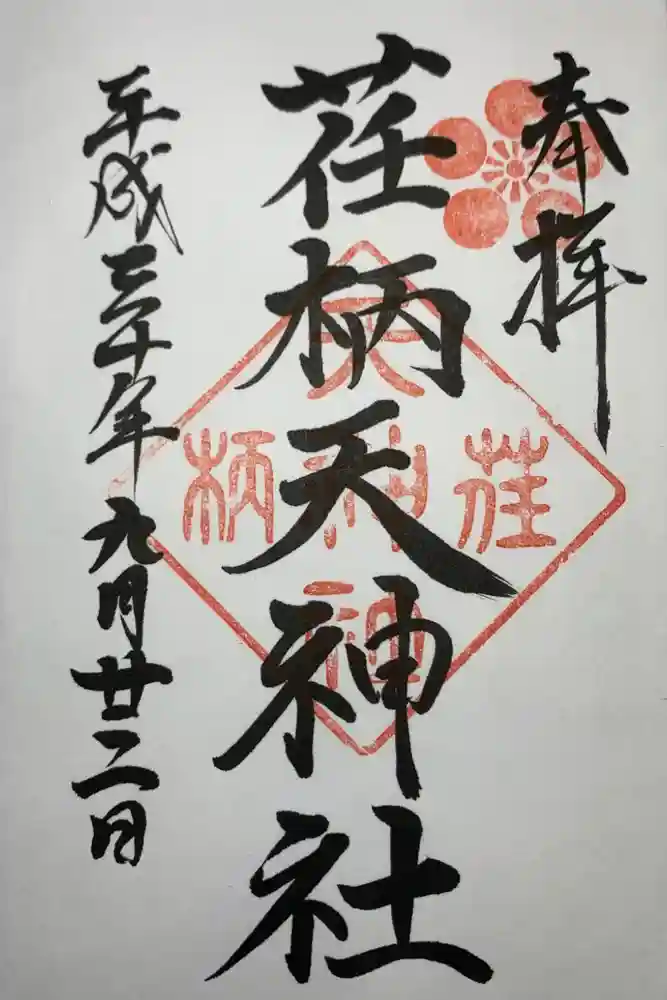 奉拝
荏柄天神社
平成三十年九月廿二日
荏
天
神
柄